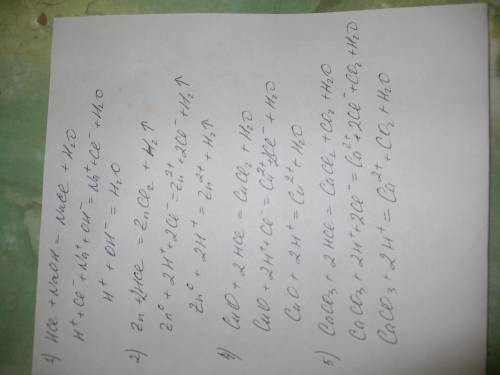 1) HCl + NaOH = NaCl + H₂O
H⁺ + Cl⁻ + Na⁺ + OH⁻ = Na⁺ + Cl⁻ + H₂O
H⁺ + OH⁻ = H₂O
2) Zn + 2HCl = ZnCl₂ + H₂↑
Zn⁰ + 2H⁺ + 2Cl⁻ = Zn²⁺ + 2Cl⁻ + H₂↑
Zn⁰ + 2H⁺ = Zn²⁺ + H₂↑
4) CuO + 2HCl = CuCl₂ + H₂O
CuO + 2H⁺ + Cl⁻ = Cu²⁺ + 2Cl⁻ + H₂O
CuO + 2H⁺ = Cu²⁺ + H₂O
5) CaCO₃ + 2HCl = CaCl₂ + CO₂ + H₂O
CaCO₃ + 2H⁺ + 2Cl⁻ = Ca²⁺ + 2Cl⁻ + CO₂ + H₂O
CaCO₃ + 2H⁺ = Ca²⁺ + CO₂ + H₂O